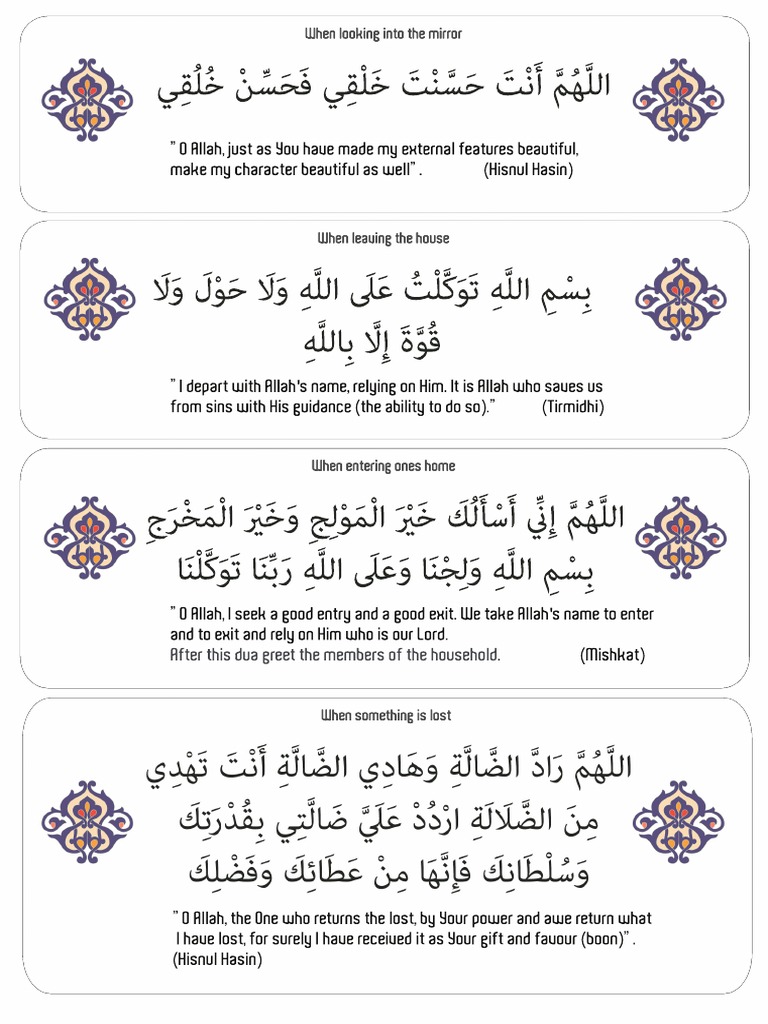 When looking into the mirror
اللَّهُمَّ أَنْتَ حَسَّنْتَ خَلْقِي فَحَسِّنْ خُلُقِي
" O Allah, just as You have made my external features beautiful,
make my character beautiful as well" . (Hisnul Hasin)
When leaving the house
بِسْمِ اللَّهِ تَوَكَّلْتُ عَلَى اللَّهِ وَلَا حَوْلَ وَلَا
قُوَّةَ إِلَّا بِاللَّهِ
" I depart with Allah's name, relying on Him. It is Allah who saves us
from sins with His guidance (the ability to do so)." (Tirmidhi)
When entering ones home
اللَّهُمَّ إِنِّي أَسْأَلُكَ خَيْرَ الْمَوْلِجِ وَخَيْرَ الْمَخْرَجِ
بِسْمِ اللَّهِ وَلِجْنَا وَعَلَى اللَّهِ رَبِّنَا تَوَكَّلْنَا
" O Allah, I seek a good entry and a good exit. We take Allah's name to enter
and to exit and rely on Him who is our Lord.
After this dua greet the members of the household. (Mishkat)
When something is lost
اللَّهُمَّ رَادَّ الضَّالَّةِ وَهَادِي الضَّالَّةِ أَنْتَ تَهْدِي
مِنَ الضَّلَالَةِ ارْدُدْ عَلَيَّ ضَالَّتِي بِقُدْرَتِكَ
وَسُلْطَانِكَ فَإِنَّهَا مِنْ عَطَائِكَ وَفَضْلِكَ
" O Allah, the One who returns the lost, by Your power and awe return what
I have lost, for surely I have received it as Your gift and favour (boon)" .
(Hisnul Hasin)